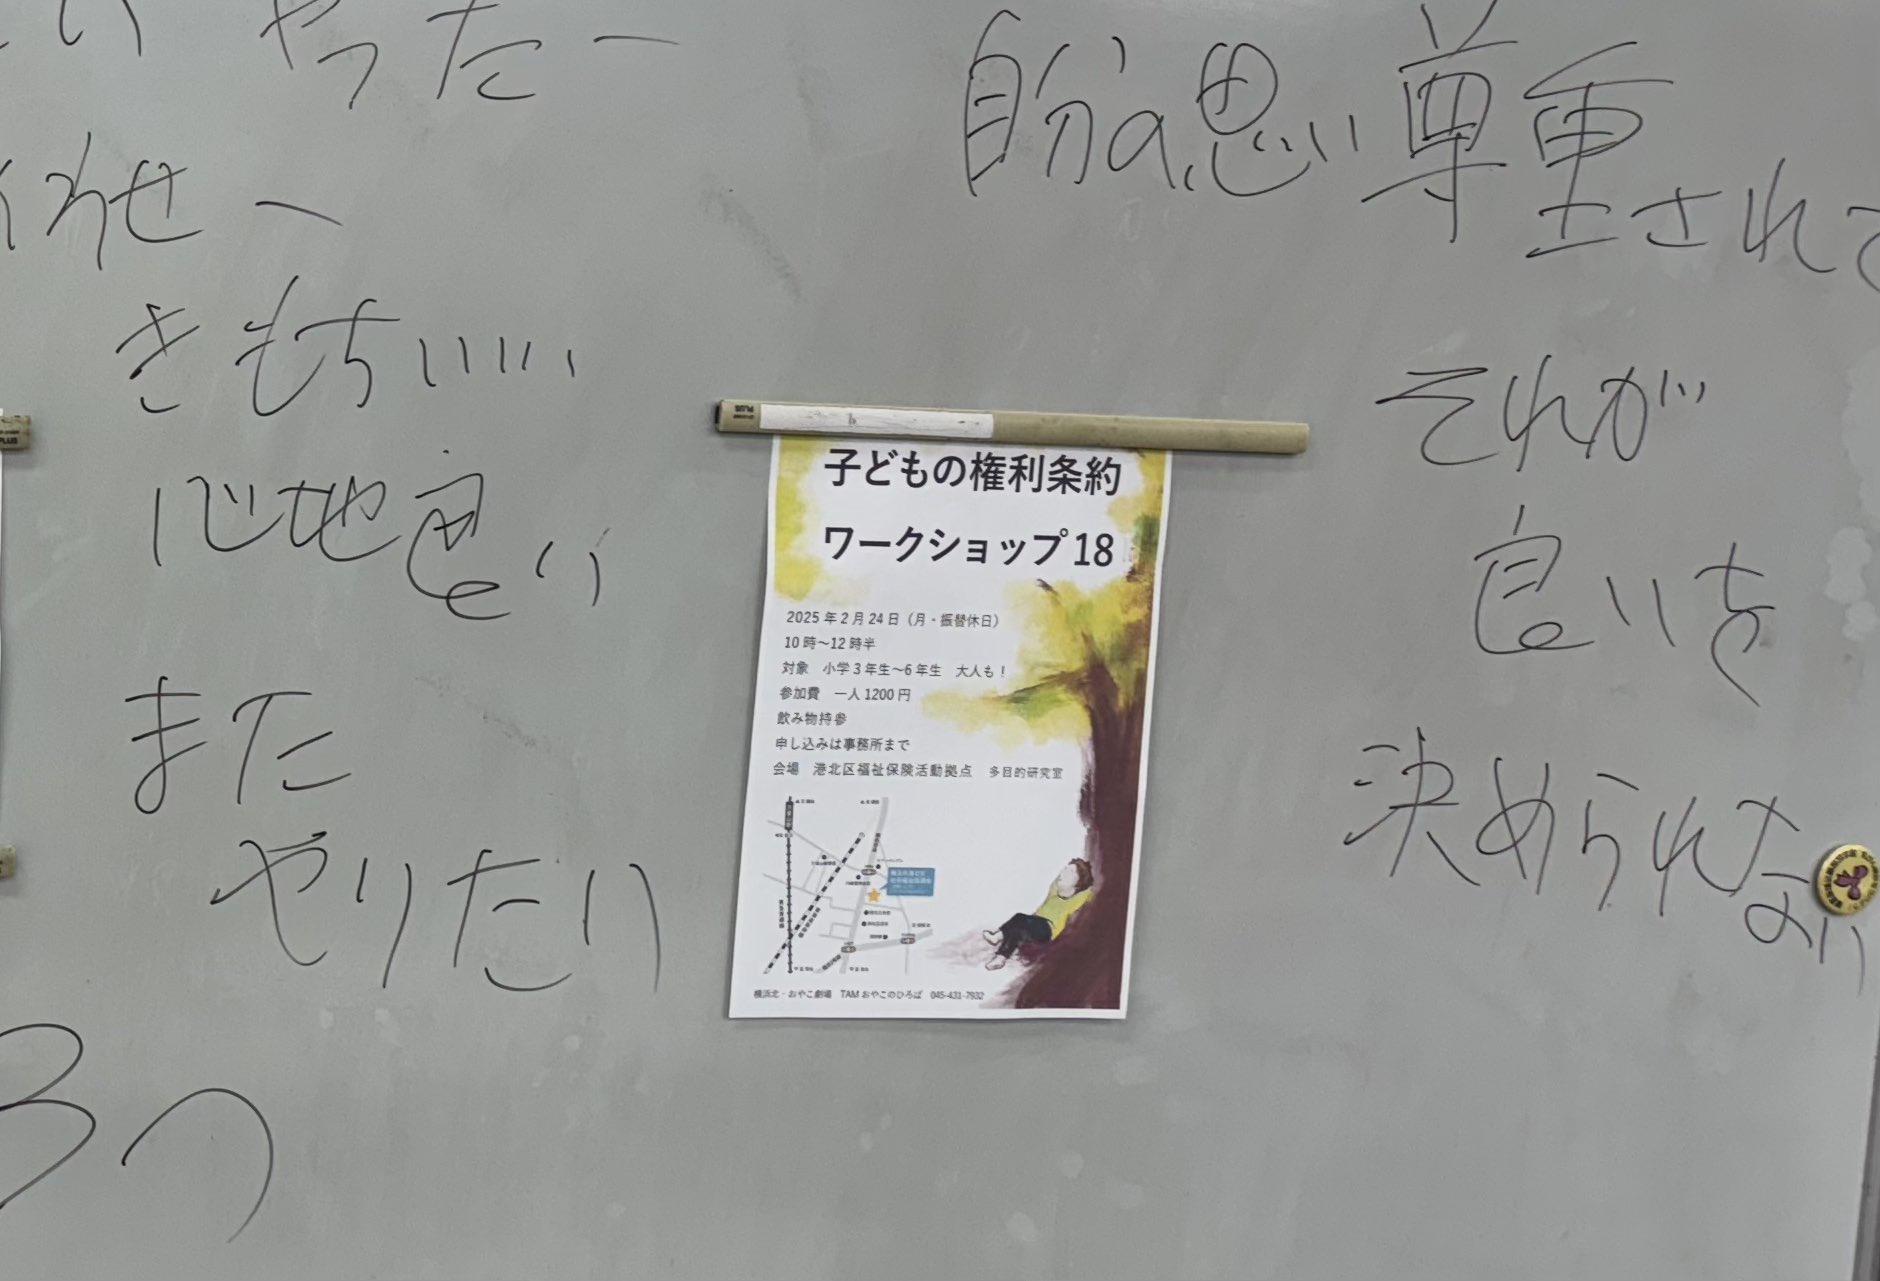 やったー
きもちいいい
心地良い
また
やりたい
子どもの権利条約
ワークショップ18
2025年2月24日（月・振替休日）
10時～12時半
対象　小学3年生～6年生　大人も！
参加費　一人1200円
飲み物持参
申し込みは事務所まで
会場　港北区福祉保険活動拠点　多目的研究室
横浜北・おやこ劇場　TAMおやこのひろば　045-431-7932
自分の思い尊重されて
それが
良いを
決められない
PLUS